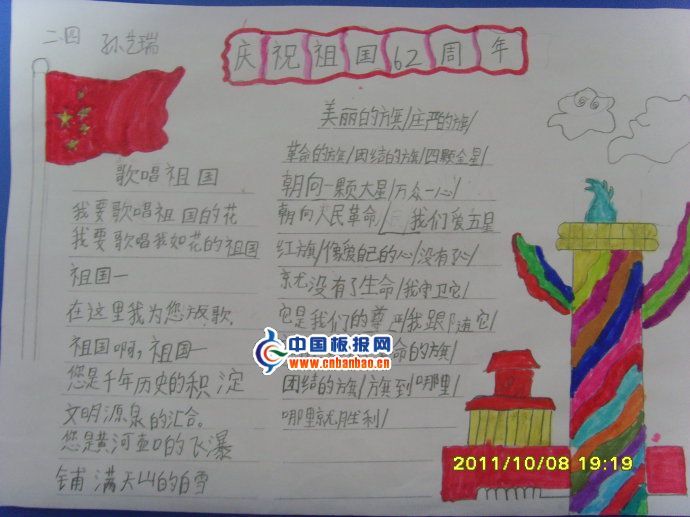 二四 孙艺瑞
庆祝祖国62周年
歌唱祖国
我要歌唱祖国的花
我要歌唱我如花的祖国
祖国一
在这里我为您放歌.
祖国啊,祖国一
您是千年历史的积淀
文明源泉的汇合.
您是黄河壶口的飞瀑
铺满天山的白雪
美丽的旗/庄严的旗/
革命的旗/团结的旗/四颗金星/
朝向一颗大星/万众一心/
朝向人民革命/我们爱五星
红旗/像爱自己的心/没有了心/
京尤没有了生命/我守卫它/
它是我们的尊严/我跟随它/
命的旗/
团结的旗/旗到哪里/
哪里就胜利/
中国板报网
www.cnbanbao.cn
2011/10/08 19:19